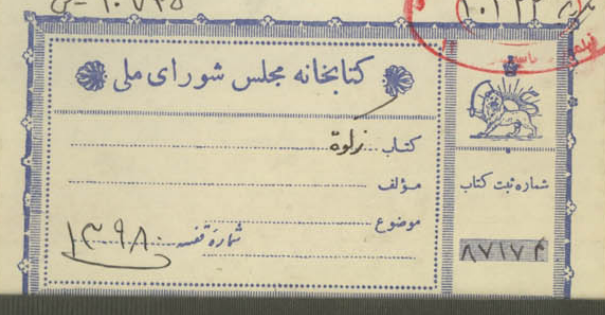 ۱۰۷۳۵
۱۰۱۲۲
کتابخانه مجلس شورای ملی
کتاب زکوة
مؤلف
موضوع
شماره قفسه ۱۳۹۸۰
شماره ثبت کتاب
۸۷۱۷۴